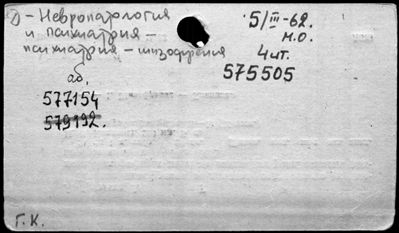 2) - Невропатология
и психиатрия -
психиатрия - шизофрения
5/III-62.
М.О.
4 шт.
575505
аб.
577154
579192.
Г.К.